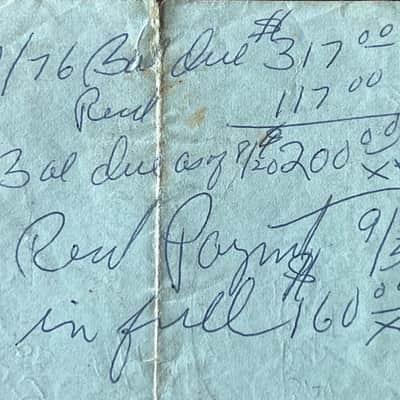 /76 Bal due $317.00
Recd 117 00
Bal due as of 8/20 $200.00 xx
Recd Paymt 9/
in full $160.00 x